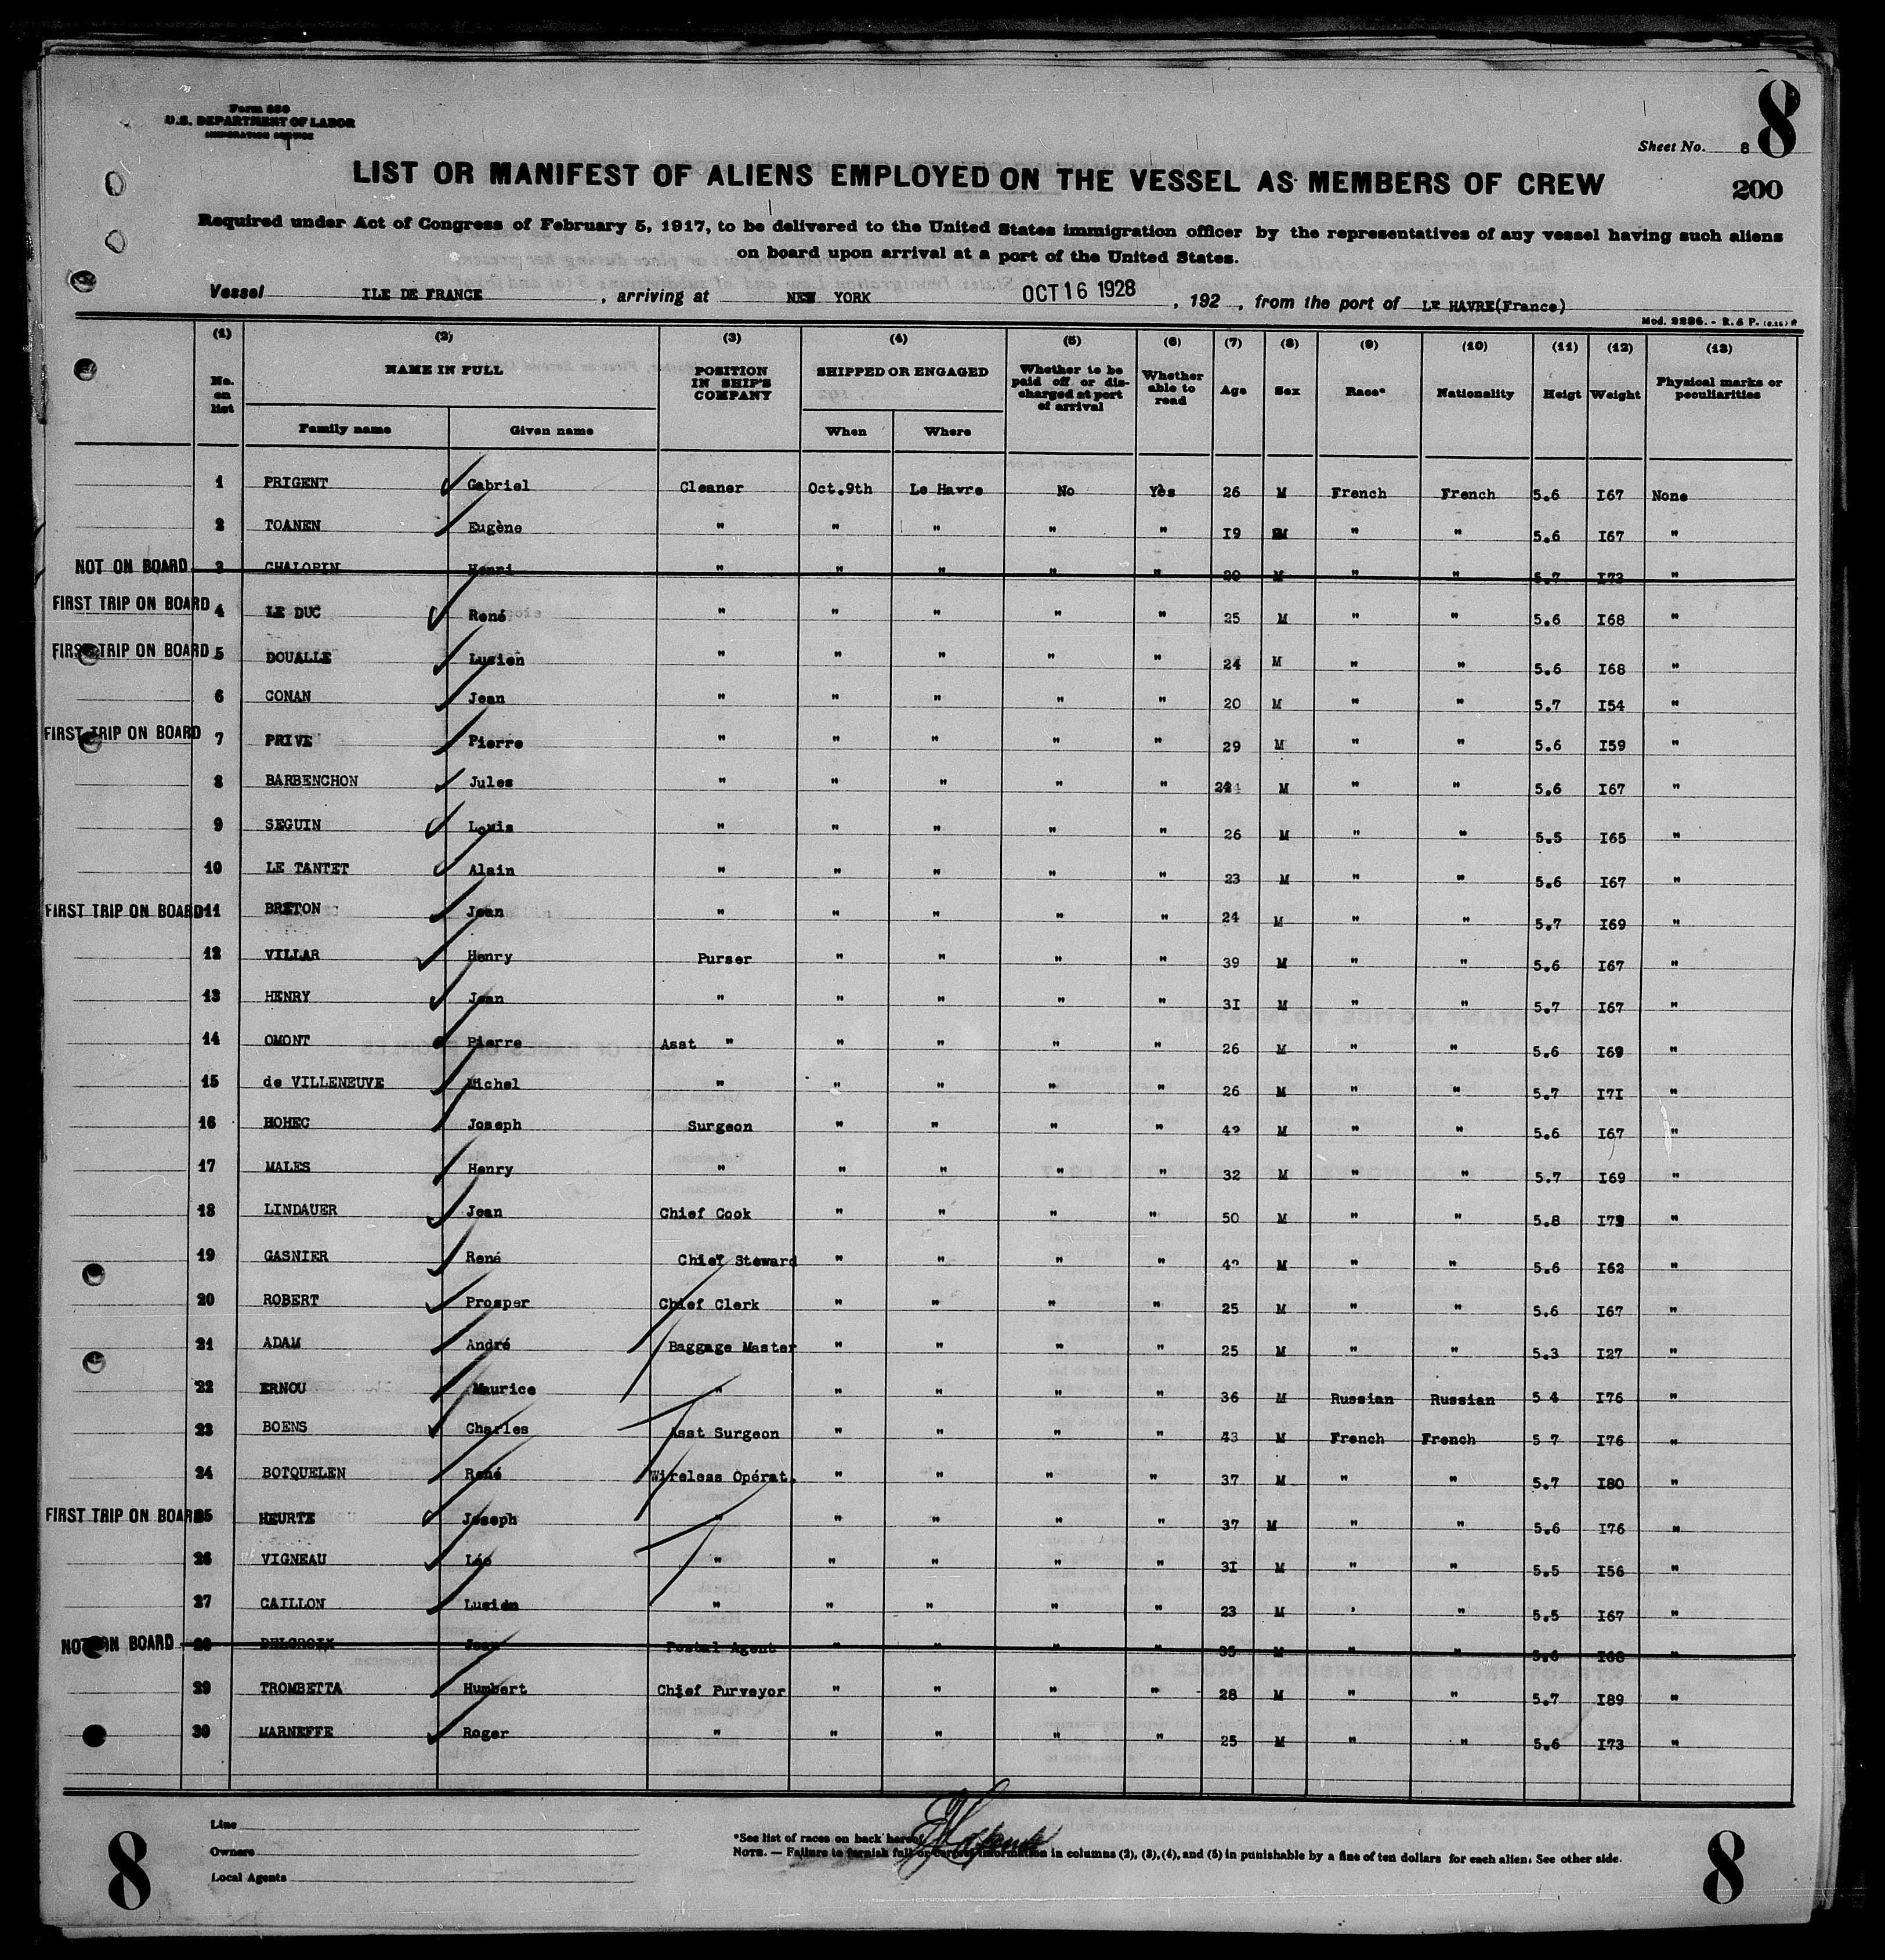 8
Form 680
U.S. DEPARTMENT OF LABOR
IMMIGRATION SERVICE
Sheet No. 8
LIST OR MANIFEST OF ALIENS EMPLOYED ON THE VESSEL AS MEMBERS OF CREW
200
Required under Act of Congress of February 5, 1917, to be delivered to the United States immigration officer by the representatives of any vessel having such aliens
on board upon arrival at a port of the United States.
Vessel ILE DE FRANCE , arriving at NEW YORK OCT 16 1928 , 192 , from the port of LE HAVRE(France)
Mod. 2286. - R. & P.
(1) (2) (3) (4) (5) (6) (7) (8) (9) (10) (11) (12) (13)
No. on list NAME IN FULL POSITION IN SHIP'S COMPANY SHIPPED OR ENGAGED Whether to be paid off or discharged at port of arrival Whether able to read Age Sex Race* Nationality Heigt Weight Physical marks or peculiarities
Family name Given name When Where
1 PRIGENT Gabriel Cleaner Oct.9th Le Havre No Yès 26 M French French 5.6 I67 None
2 TOANEN Eugène " " " " " I9 M " " 5.6 I67 "
NOT ON BOARD 3 CHALOPIN Henri " " " " " M " " 5.7 I73 "
FIRST TRIP ON BOARD 4 LE DUC René " " " " " 25 M " " 5.6 I68 "
FIRST TRIP ON BOARD 5 DOUALLE Lucien " " " " " 24 M " " 5.6 I68 "
6 CONAN Jean " " " " " 20 M " " 5.7 I54 "
FIRST TRIP ON BOARD 7 PRIVE Pierre " " " " " 29 M " " 5.6 I59 "
8 BARBENCHON Jules " " " " " 24 M " " 5.6 I67 "
9 SEGUIN Louis " " " " " 26 M " " 5.5 I65 "
10 LE TANTET Alain " " " " " 23 M " " 5.6 I67 "
FIRST TRIP ON BOARD 11 BRETON Jean " " " " " 24 M " " 5.7 I69 "
12 VILLAR Henry Purser " " " " 39 M " " 5.6 I67 "
13 HENRY Jean " " " " " 3I M " " 5.7 I67 "
14 OMONT Pierre Asst " " " " " 26 M " " 5.6 I69 "
15 de VILLENEUVE Michel " " " " " 26 M " " 5.7 I7I "
16 HOHEC Joseph Surgeon " " " " 42 M " " 5.6 I67 "
17 MALES Henry " " " " " 32 M " " 5.7 I69 "
18 LINDAUER Jean Chief Cook " " " " 50 M " " 5.8 "
19 GASNIER René Chief Steward " " " " 42 M " " 5.6 I62 "
20 ROBERT Prosper Chief Clerk " " " " 25 M " " 5.6 I67 "
21 ADAM André Baggage Master " " " " 25 M " " 5.3 I27 "
22 ERNOU Maurice " " " " " 36 M Russian Russian 5 4 I76 "
23 BOENS Charles Asst Surgeon " " " " 43 M French French 5 7 I76 "
24 BOTQUELEN René Wireless Opérat. " " " " 37 M " " 5.7 I80 "
FIRST TRIP ON BOARD 25 HEURTE Joseph " " " " " 37 M " " 5.6 I76 "
26 VIGNEAU Léo " " " " " 3I M " " 5.5 I56 "
27 CAILLON Lucien " " " " " 23 M ' " 5.5 I67 "
NOT ON BOARD 28 DELCROIX Jean Postal Agent " " " " 35 M " " 5.6 I68 "
29 TROMBETTA Humbert Chief Purveyor " " " " 28 M " " 5.7 I89 "
30 MARNEFFE Roger " " " " " 25 M " " 5.6 I73 "
Line
Owners
Local Agents
*See list of races on back hereof
NOTE. — Failure to furnish full or correct information in columns (2), (3), (4), and (5) in punishable by a fine of ten dollars for each alien. See other side.
8
8